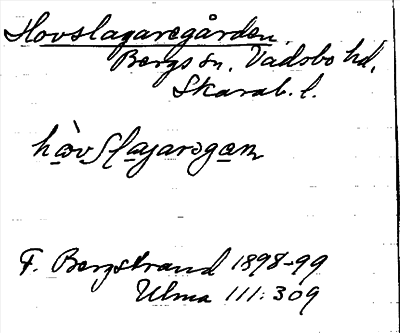 Hovslagaregården.
Bergs sn. Vadsbo hd.
Skarab. l.
hòvʃlagaregaɳ
F. Bergstrand 1898-99
Ulma 111:309